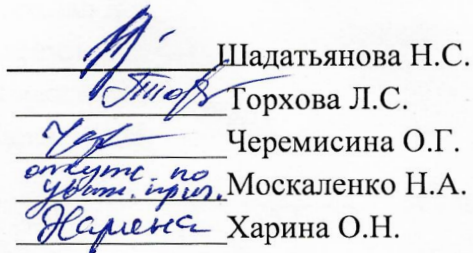 Шадатьянова Н.С.
Торхова Л.С.
Черемисина О.Г.
отсутс. по
уваж. прич. Москаленко Н.А.
Харина О.Н.